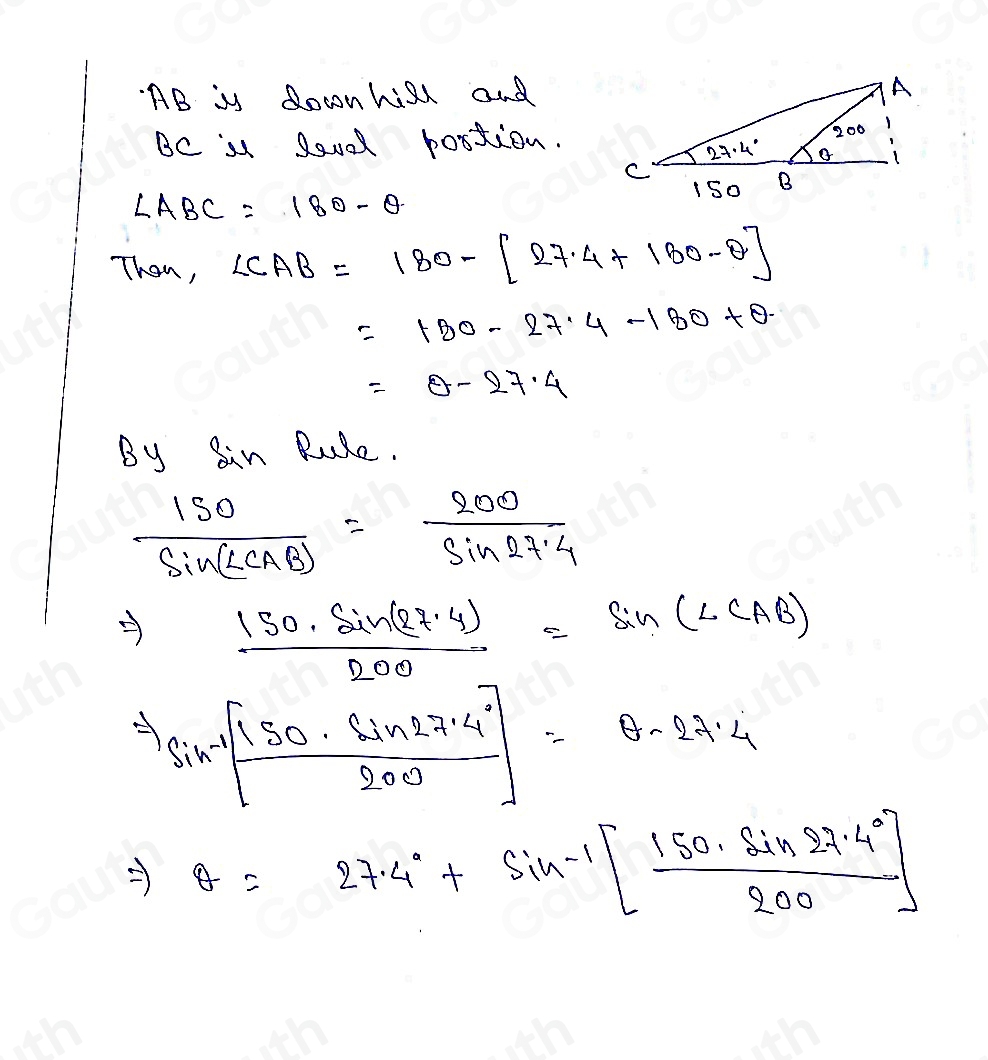 AB is downhill and
BC is level portion.
∠ABC = 180 - θ
Then, ∠CAB = 180 - [27.4 + 180 - θ]
= 180 - 27.4 - 180 + θ
= θ - 27.4
By Sin Rule.
150 / Sin(∠CAB) = 200 / Sin 27.4
⇒ 150. Sin(27.4) / 200 = Sin (∠CAB)
⇒ Sin⁻¹[150. Sin 27.4° / 200] = θ - 27.4
⇒ θ = 27.4° + Sin⁻¹[150. Sin 27.4° / 200]
A
200
27.4°
θ
C
150
B
Gauth